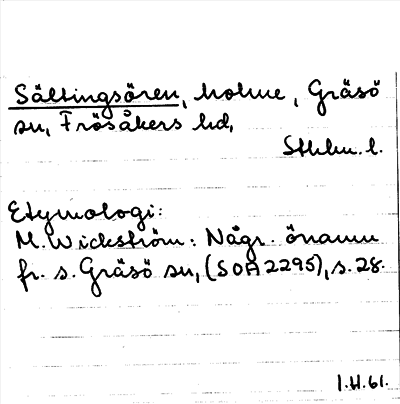 Sältingsören, holme, Gräsö
sn, Frösåkers hd,
Sthlm. l.
Etymologi:
M. Wickström: Någr. önamn
fr. s. Gräsö sn, (SOA 2295), s. 28.
I.H. 61.